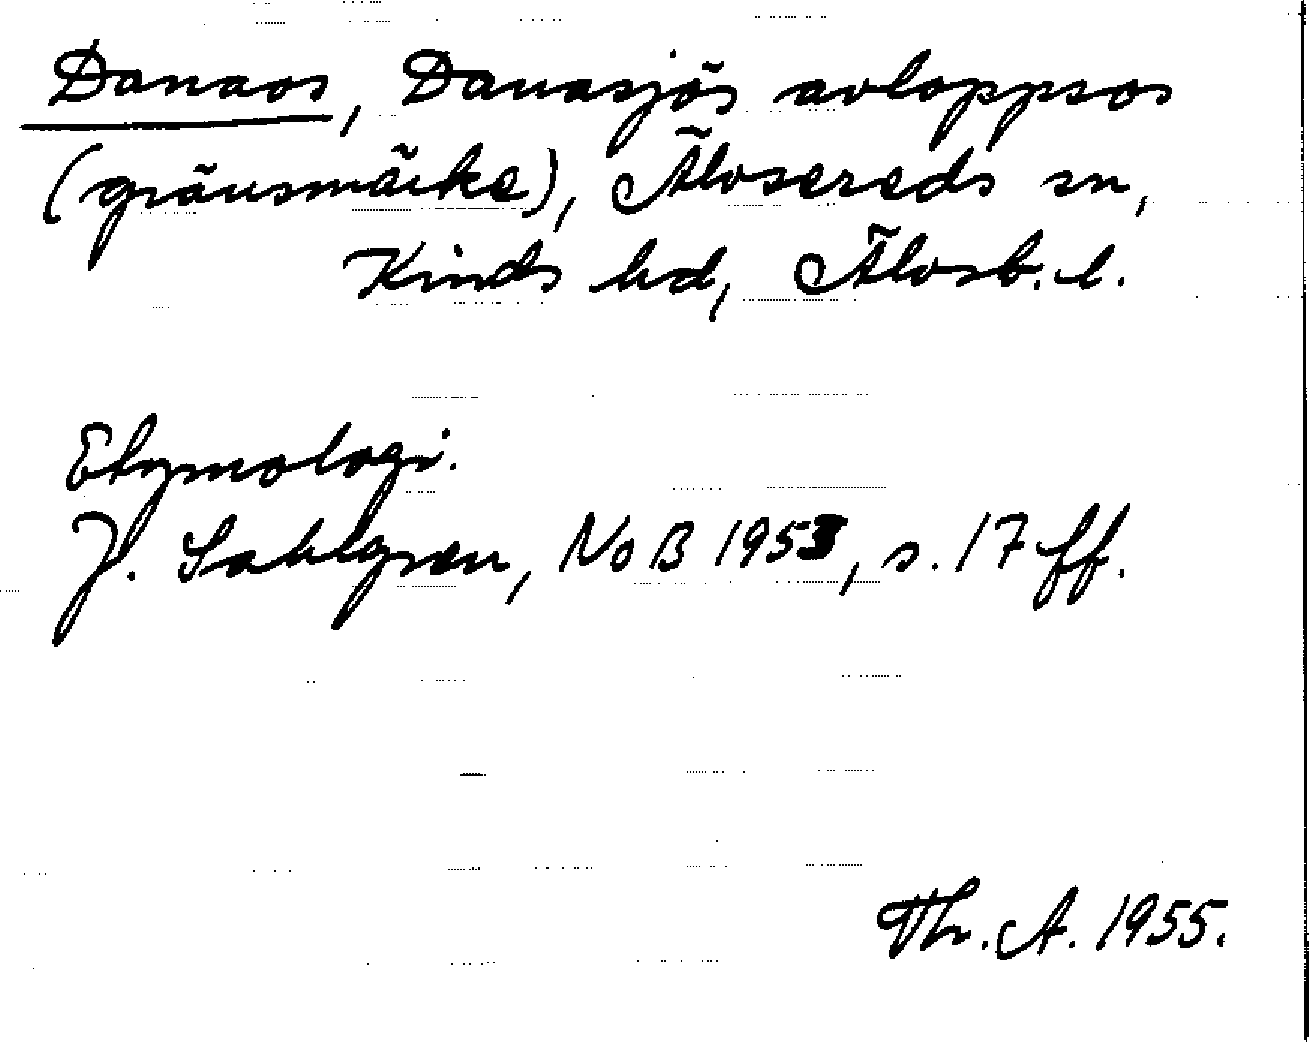 Danaos, Danasjös avloppsos
(gränsmärke), Älvsereds sn,
Kinds hd, Älvsb. l.
Etymologi.
J. Sahlgren, NoB 1953, s. 17 ff.
Th. A. 1955.